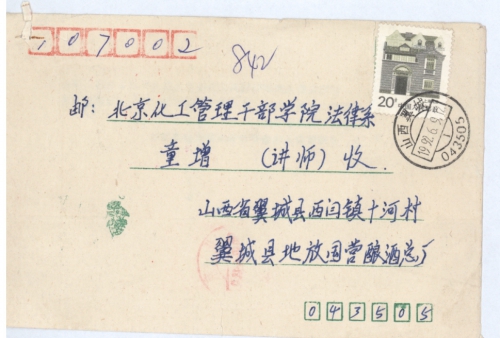 107002
842
20分
邮：北京化工管理干部学院法律系
童增（讲师）收
山西翼城
1992.6.9
043505
山西省翼城县西闫镇十河村
翼城县地放国营酿酒总厂
043505